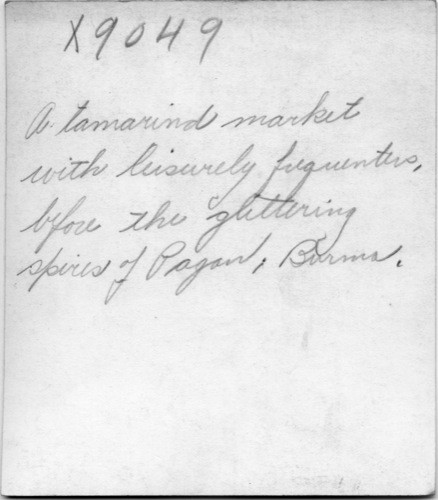 X9049
A tamarind market
with leisurely frequenters,
before the glittering
spires of Pagan, Burma.